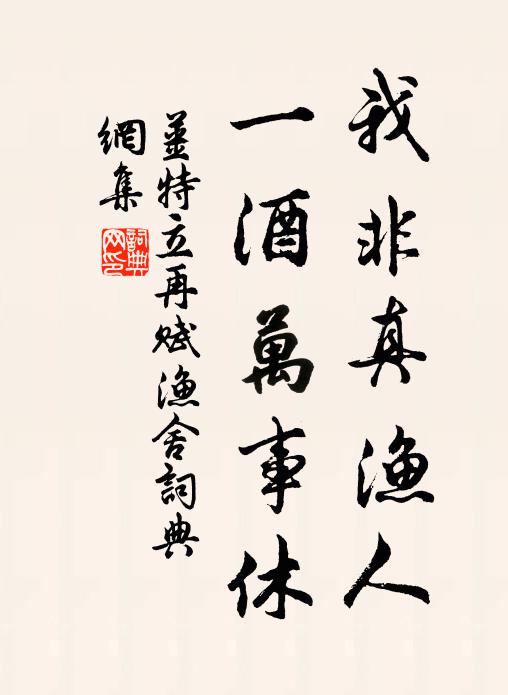 我非真漁人
一酒萬事休
姜特立再賦漁舍詞典
網集
詞典
網印